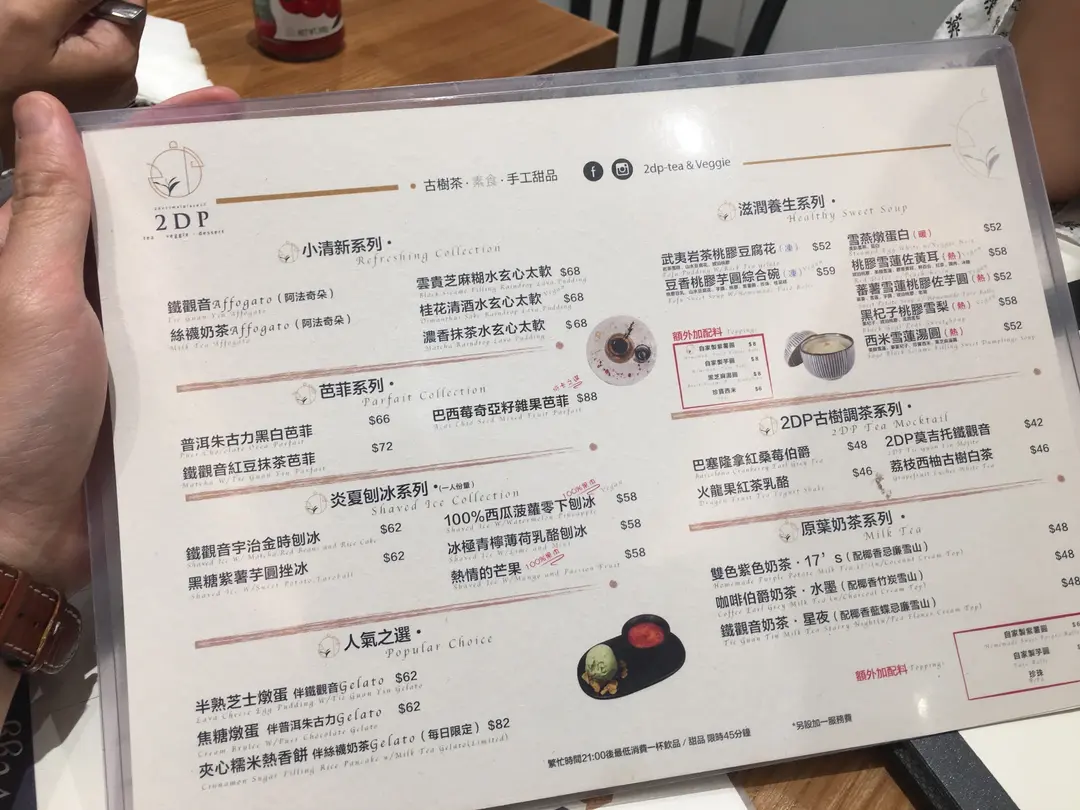 2DP
tea · veggie · dessert
古樹茶 · 素食 · 手工甜品
2dp-tea & Veggie
小清新系列
Refreshing Collection
鐵觀音Affogato (阿法奇朵)
Tie Guan Yin Affogato
絲襪奶茶Affogato (阿法奇朵)
Milk Tea Affogato
雲貴芝麻糊水玄心太軟 $68
桂花清酒水玄心太軟 $68
濃香抹茶水玄心太軟 $68
Matcha Raindrop Lava Pudding
芭菲系列
Parfait Collection
普洱朱古力黑白芭菲 $66
鐵觀音紅豆抹茶芭菲 $72
Matcha W/Tie Guan Yin Parfait
巴西莓奇亞籽雜果芭菲 $88
Acai Chia Seed Mixed Fruit Parfait
炎夏刨冰系列 (一人份量)
Shaved Ice Collection
鐵觀音宇治金時刨冰 $62
黑糖紫薯芋圓挫冰 $62
100%西瓜菠蘿零下刨冰 $58
100%果肉
Shaved Ice W/Watermelon Pineapple
冰極青檸薄荷乳酪刨冰 $58
Shaved Ice W/Lime and Mint
熱情的芒果 100%果肉 $58
Shaved Ice W/Mango and Passion Fruit
人氣之選
Popular Choice
半熟芝士燉蛋 伴鐵觀音Gelato $62
Lava Cheese Egg Pudding W/Tie Guan Yin Gelato
焦糖燉蛋 伴普洱朱古力Gelato $62
夾心糯米熱香餅 伴絲襪奶茶Gelato (每日限定) $82
Cinnamon Sugar Filling Rice Pancake w/Milk Tea Gelato(Limited)
滋潤養生系列
Healthy Sweet Soup
武夷岩茶桃膠豆腐花 (凍) $52
豆香桃膠芋圓綜合碗 (凍) $59
雪燕燉蛋白 (暖) $52
桃膠雪蓮佐黃耳 (熱) $58
蕃薯雪蓮桃膠佐芋圓 (熱) $52
黑杞子桃膠雪梨 (熱) $58
西米雪蓮湯圓 (熱) $52
額外加配料 Topping:
自家製紫薯圓 $8
自家製芋圓 $8
黑芝麻湯圓 $8
珍寶西米 $6
2DP古樹調茶系列
2DP Tea Mocktail
巴塞隆拿紅桑莓伯爵 $48
Barcelona Cranberry Earl Grey Tea
火龍果紅茶乳酪 $46
Dragon Fruit Tea Yogurt Shake
2DP莫吉托鐵觀音 $42
荔枝西柚古樹白茶 $46
Grapefruit Lychee White Tea
原葉奶茶系列
Milk Tea
雙色紫色奶茶 · 17's (配椰香忌廉雪山) $48
咖啡伯爵奶茶 · 水墨 (配椰香竹炭雪山) $48
Coffee Earl Grey Milk Tea (w/Charcoal Cream Top)
鐵觀音奶茶 · 星夜 (配椰香藍蝶忌廉雪山) $48
額外加配料 Topping:
自家製紫薯圓
自家製芋圓
Taro Balls
珍珠
*另設加一服務費
繁忙時間21:00後最低消費一杯飲品 / 甜品 限時45分鐘